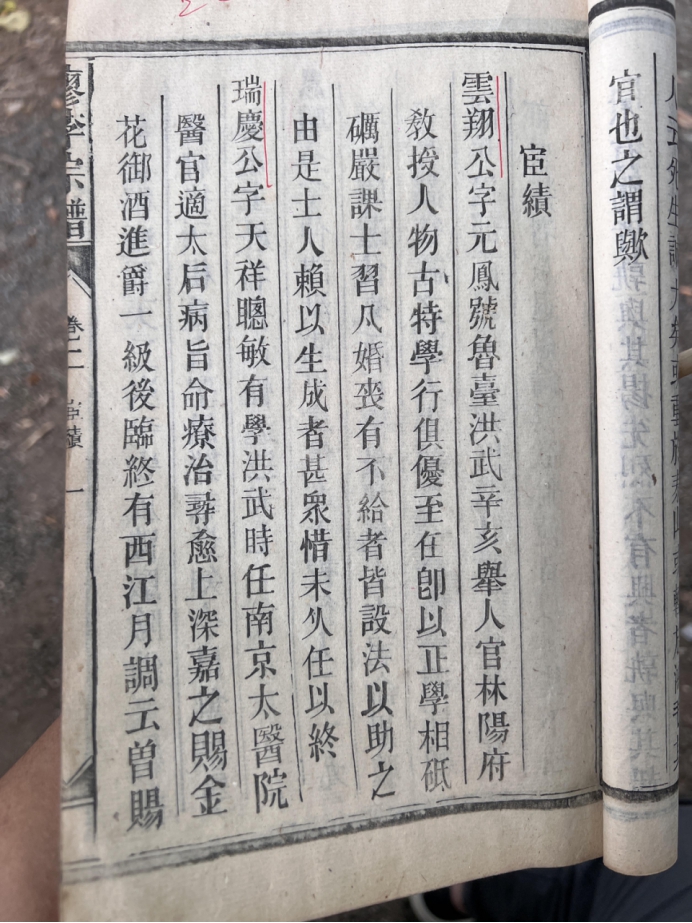 官也之謂歟
宦績
雲翔公字元鳳號魯臺洪武辛亥舉人官林陽府
教授人物古特學行俱優至任卽以正學相砥
礪嚴課士習凡婚喪有不給者皆設法以助之
由是士人賴以生成者甚衆惜未久任以終
瑞慶公字天祥聰敏有學洪武時任南京太醫院
醫官適太后病旨命療治尋愈上深嘉之賜金
花御酒進爵一級後臨終有西江月調云曾賜
廖李宗譜 卷二 宦績 一